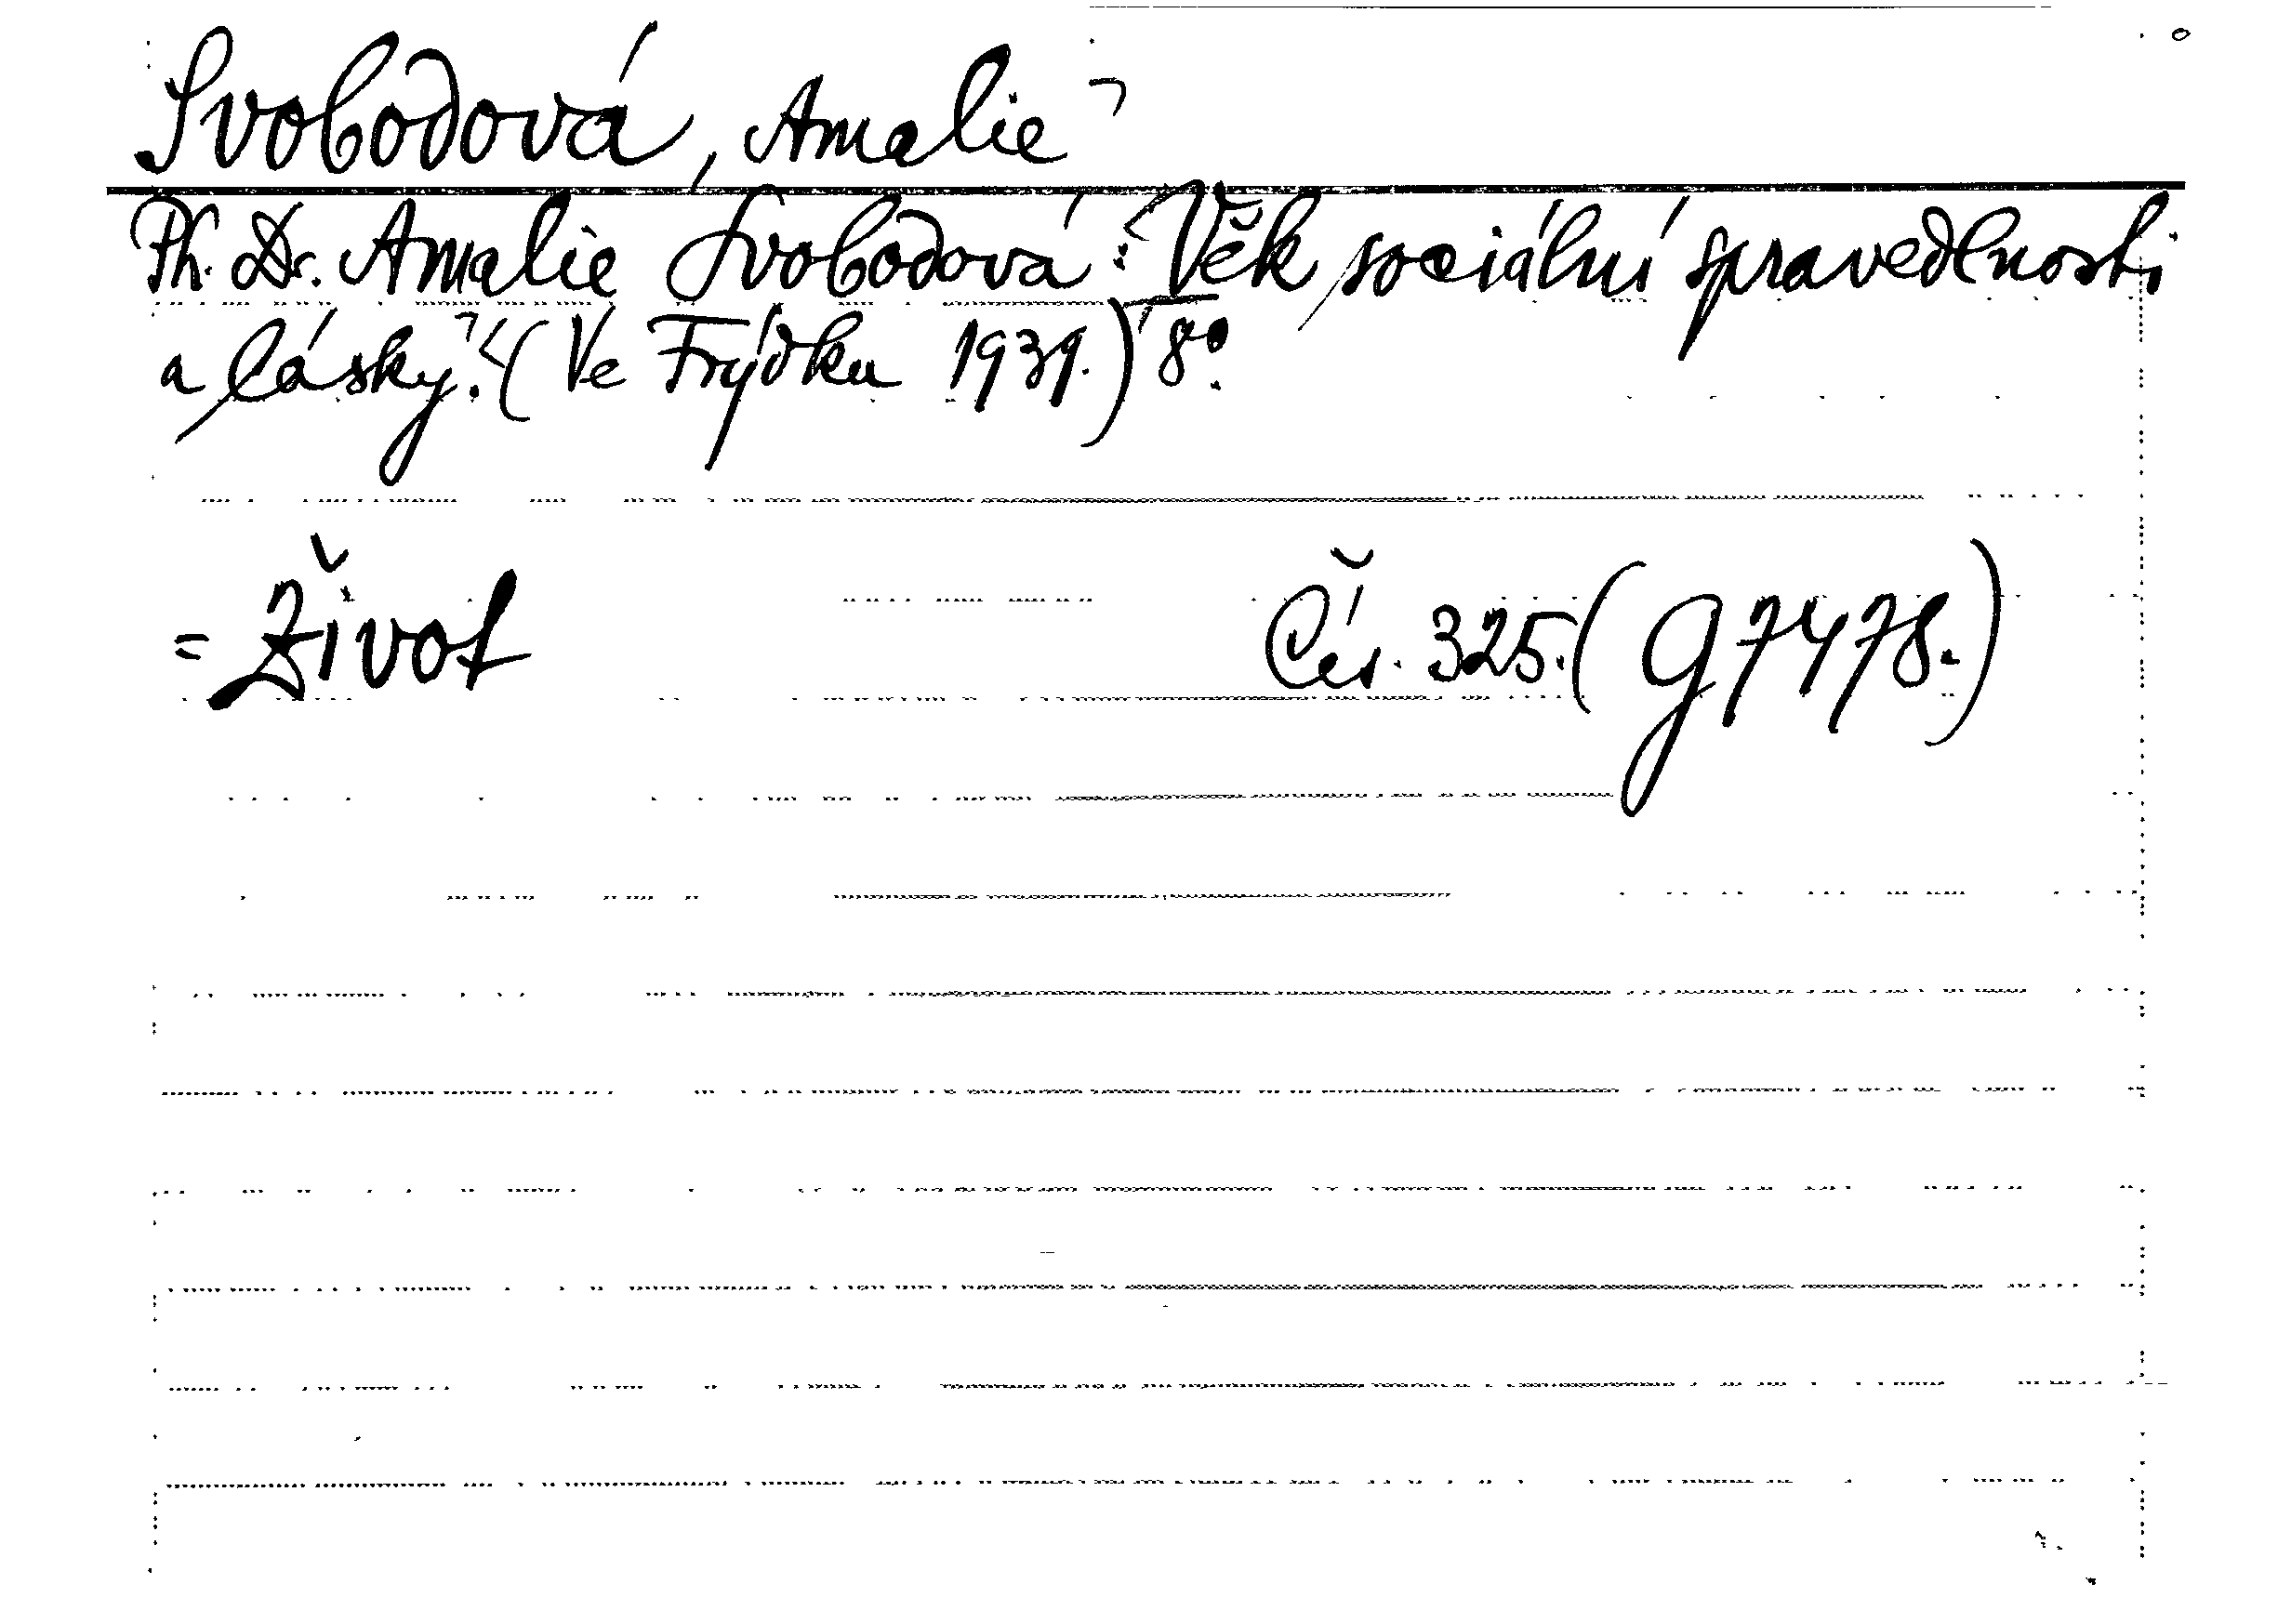 Svobodová, Amalie
Ph. Dr. Amalie Svobodová: Věk sociální spravedlnosti
a lásky. (Ve Frýdku 1939.) 8°.
= Život Čís. 325. (G 7478.)